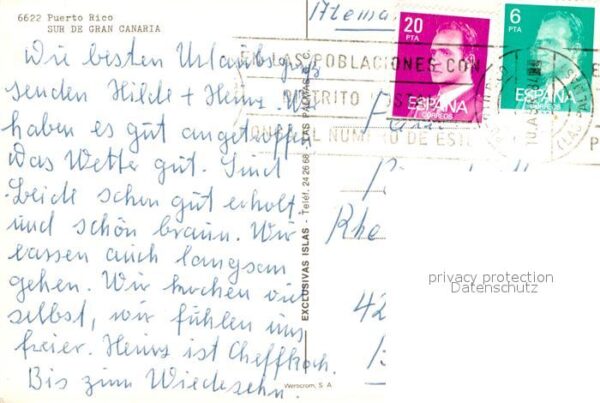 6622 Puerto Rico
SUR DE GRAN CANARIA
Die besten Urlaubsgrüße
senden Hilde + Heinz. Wir
haben es gut angetroffen
Das Wetter gut. Sind
beide schon gut erholt
und schön braun. Wir
lassen auch langsam
gehen. Wir kochen viel
selbst, wir fühlen uns
freier. Heinz ist Cheffkoch.
Bis zum Wiedersehn.
EXCLUSIVAS ISLAS - Teléf. 24 26 68 - LAS PALMAS
Werocrom, S. A.
20
PTA
ESPAÑA
CORREOS
6
PTA
ESPAÑA
CORREOS
EN LAS POBLACIONES CON
DISTRITO POSTAL
EL NUMERO DE
Fam
Rhe
42
privacy protection
Datenschutz